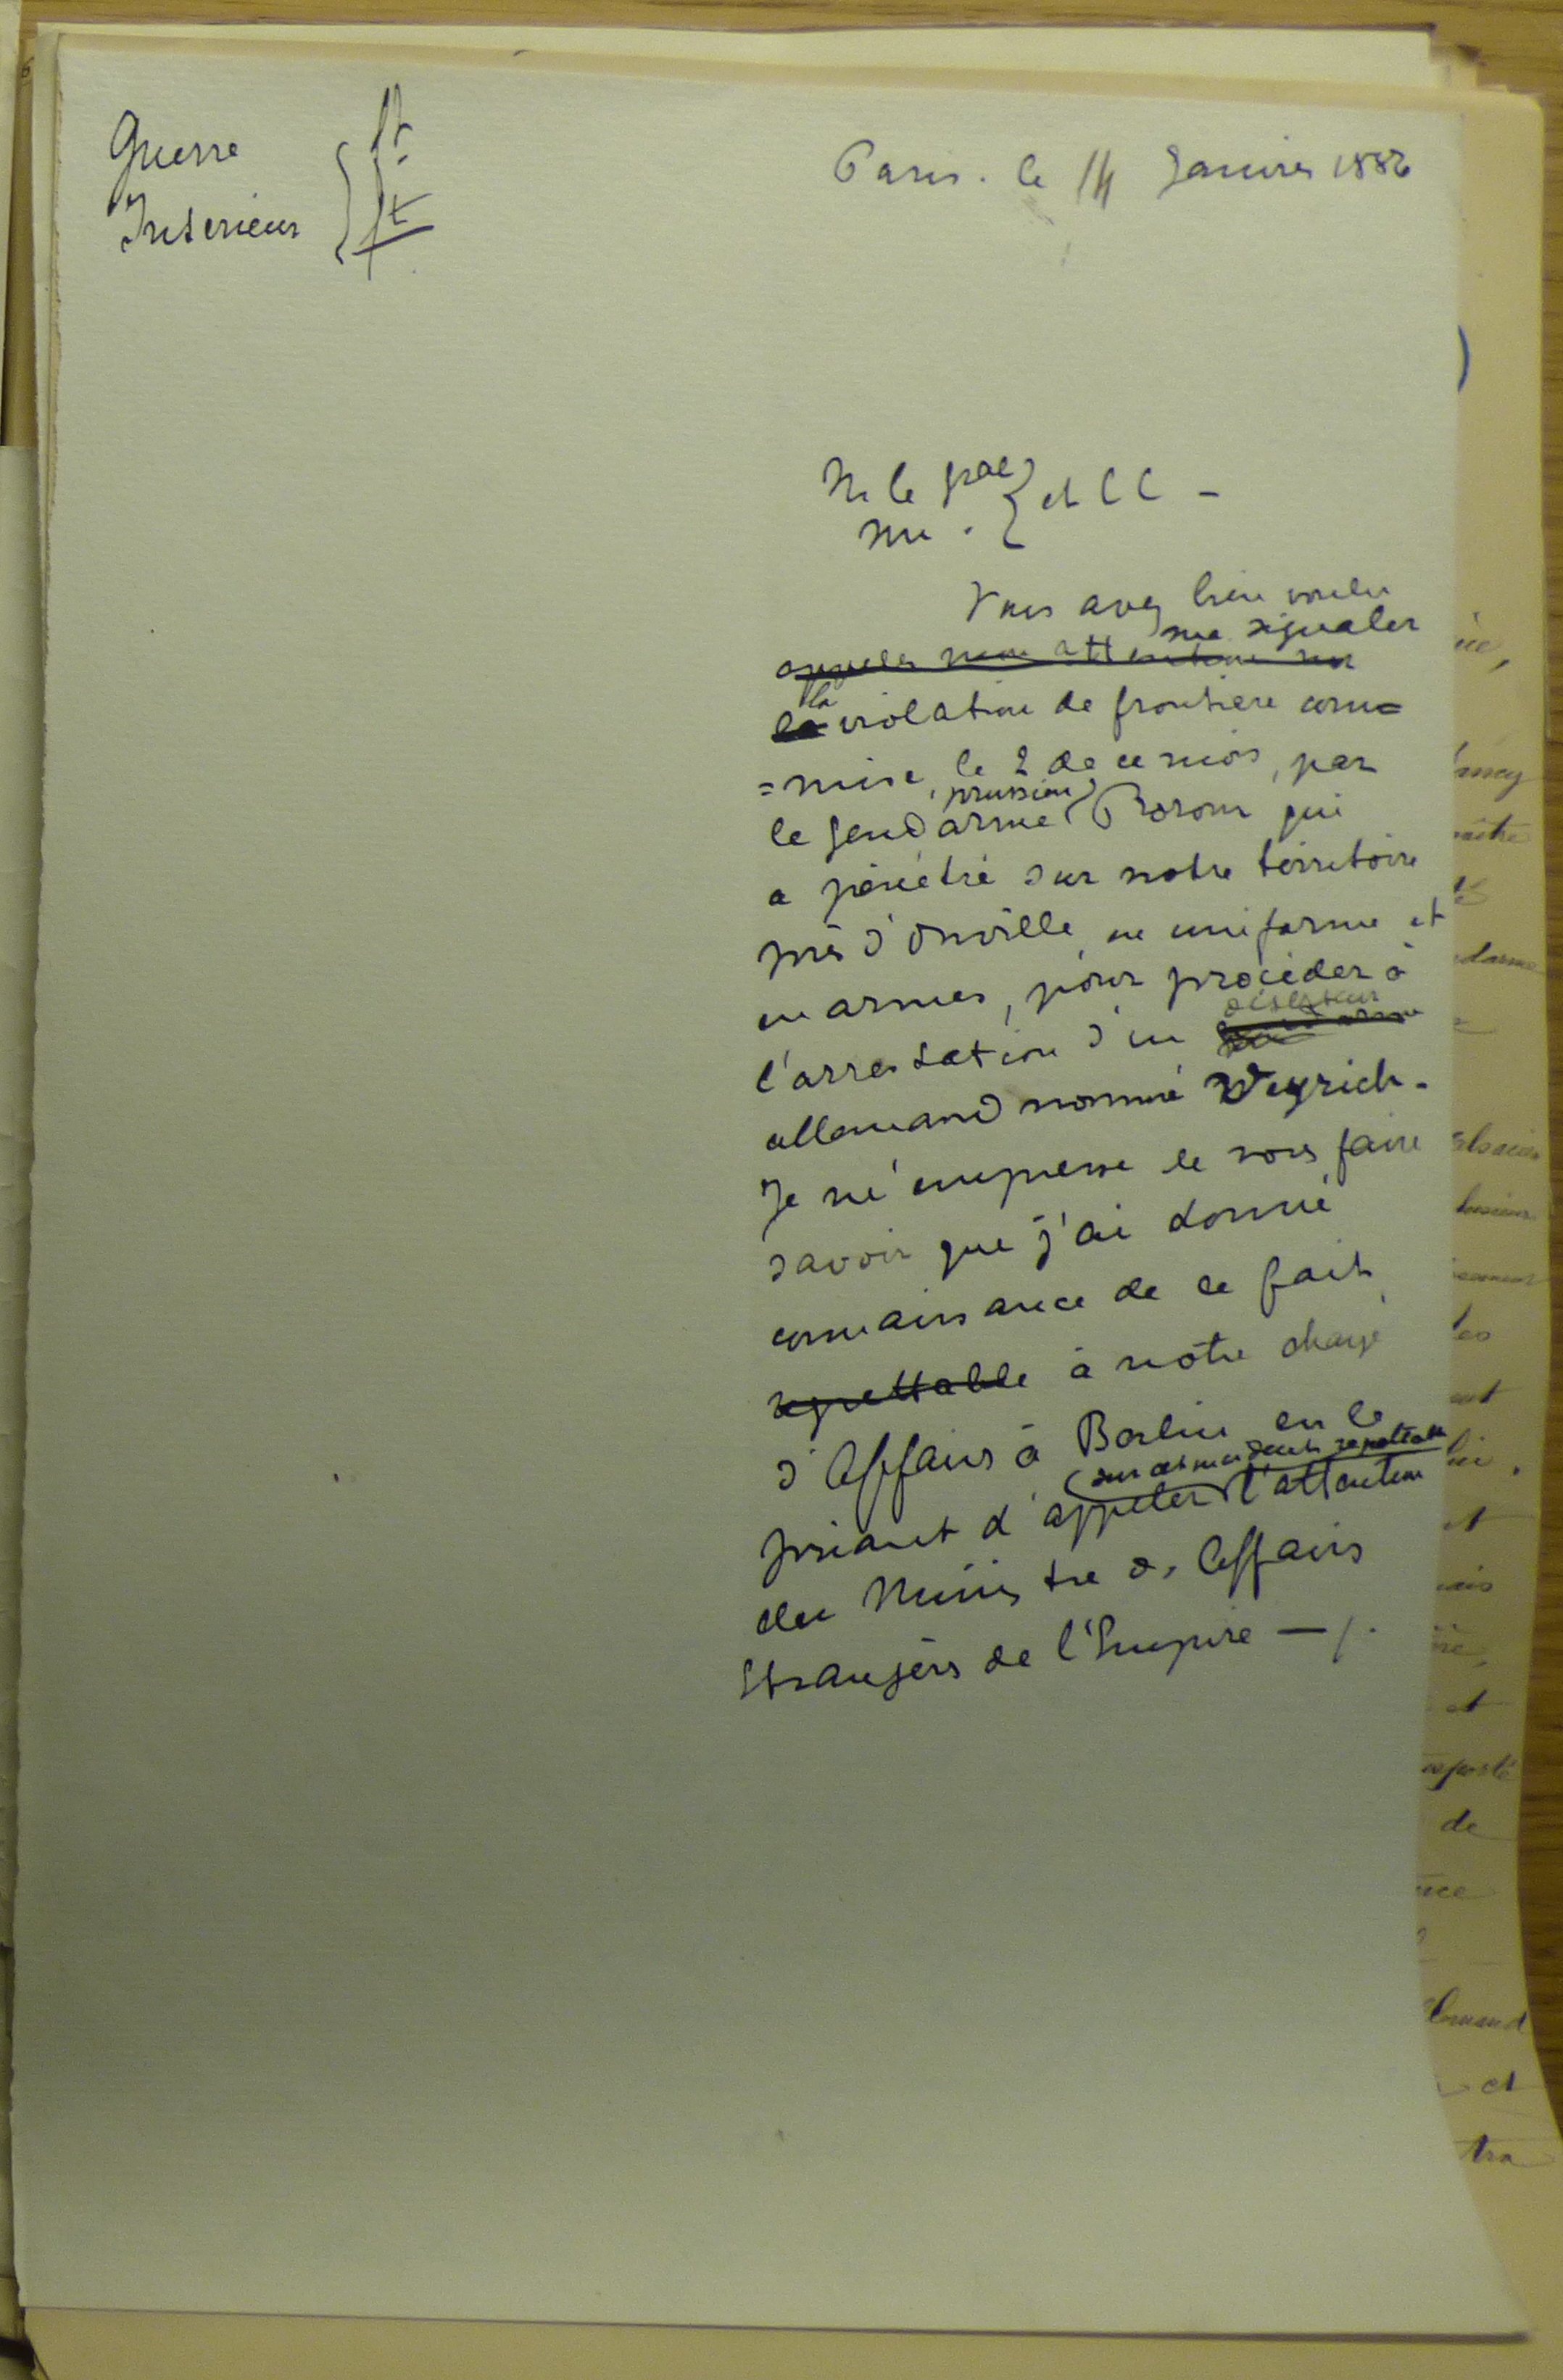 Guerre
Intérieur
Paris. le 14 Janvier 1886
M. le gral
Mr. et CC -
Vous avez bien voulu
me signaler
appeler mon attention sur
la
la violation de frontière com=
=mise, le 2 de ce mois, par
prussien
le gendarme qui
a pénétré sur notre territoire
près d'Onville en uniforme et
en armes, pour procéder à
déserteur
l'arrestation d'un gendarme
allemand nommé Weyrich.
Je m'empresse de vous faire
savoir que j'ai donné
connaissance de ce fait
regrettable à notre chargé
d'Affaires à Berlin en le
sur cet incident regrettable
priant d'appeler l'attention
du Ministre des Affaires
Etrangères de l'Empire —